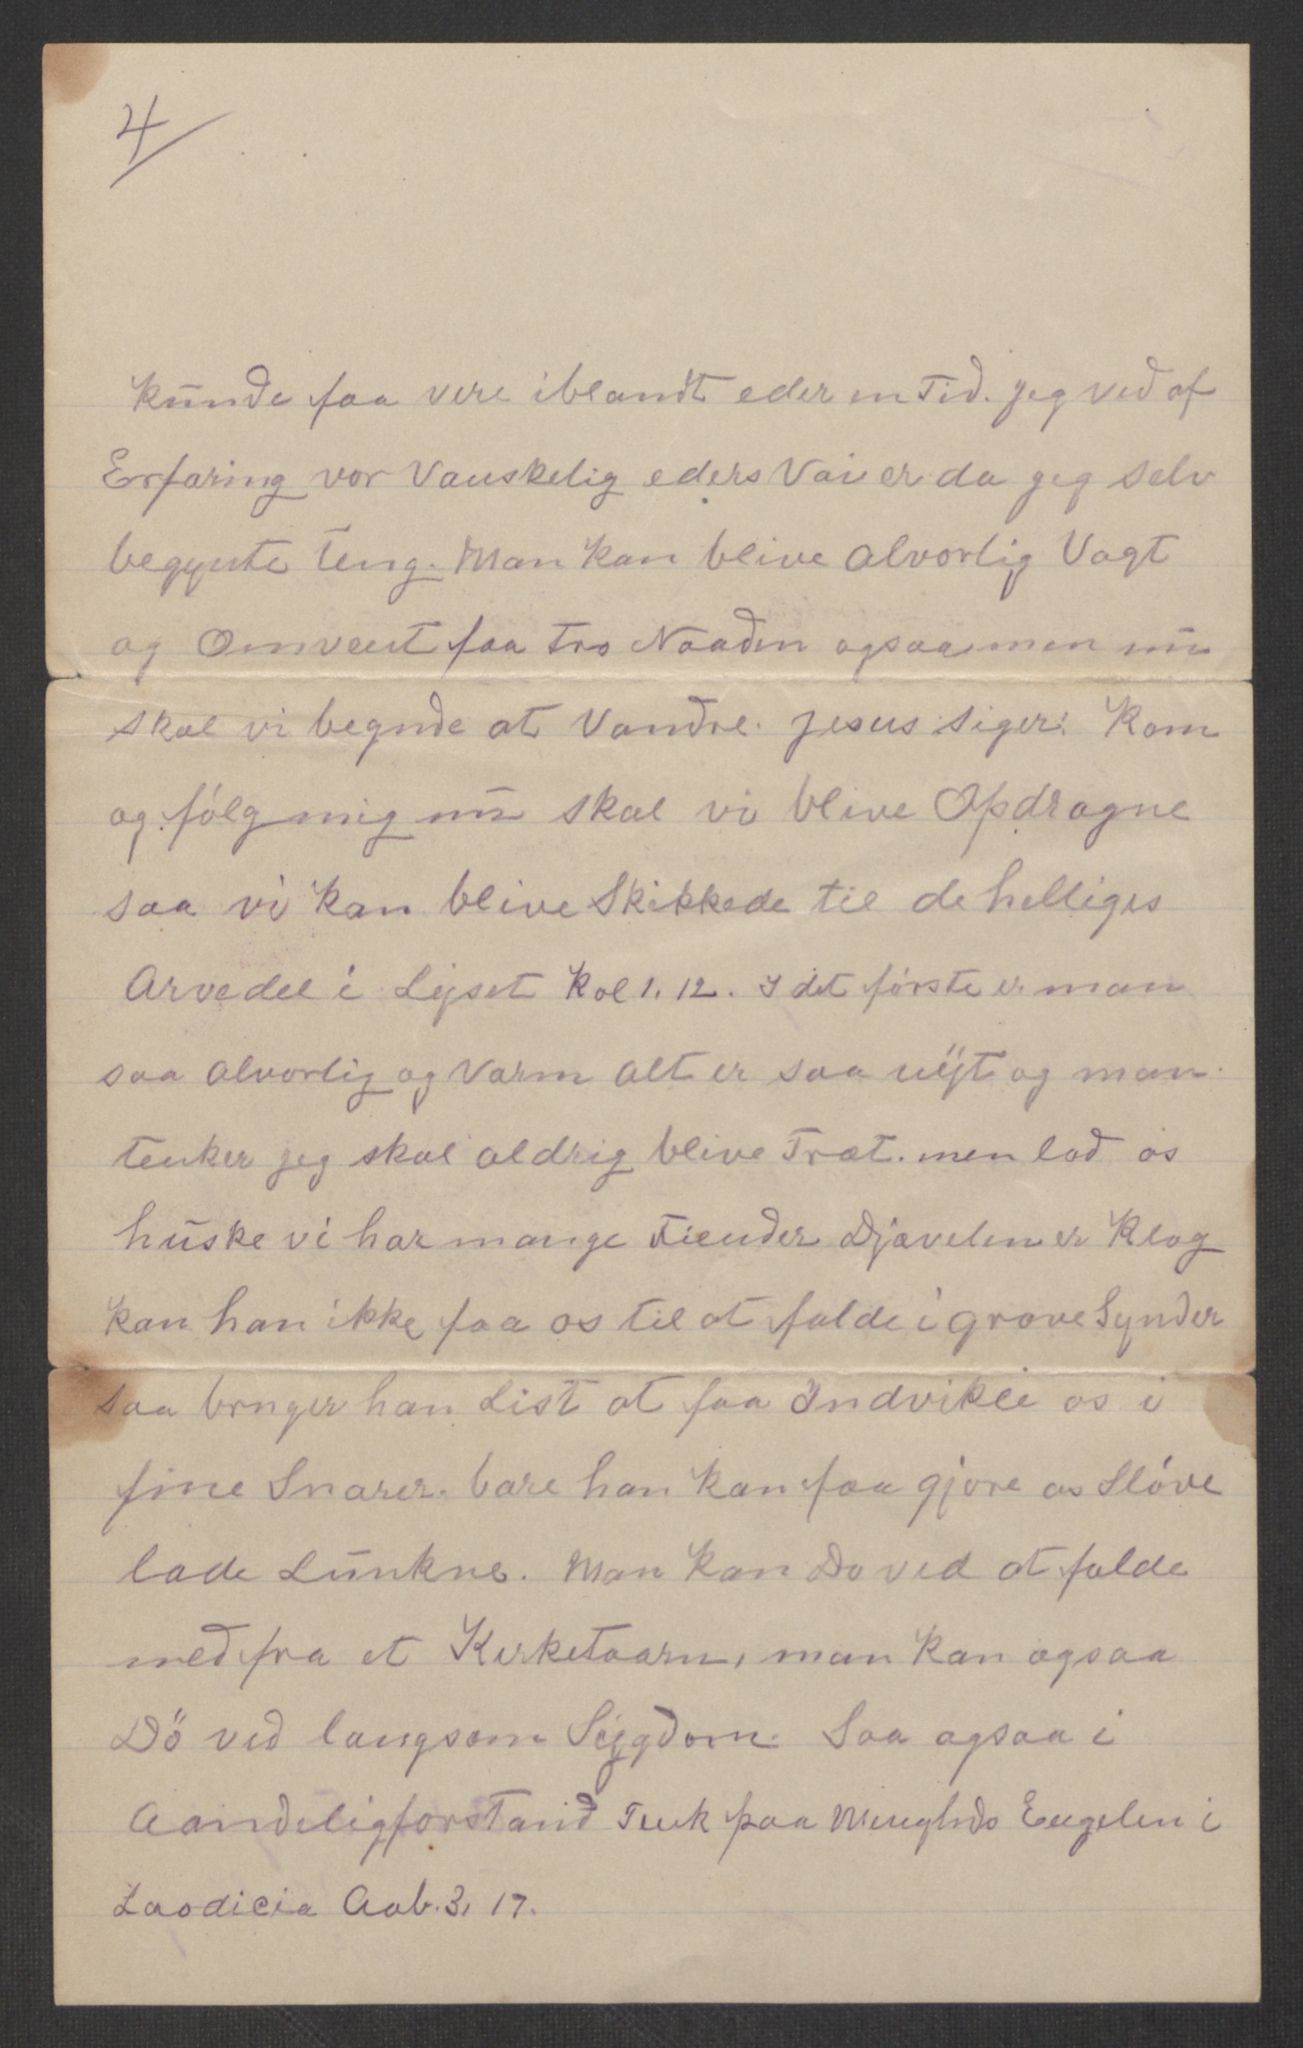 4/
kunde faa vere iblandt eder en Tid. jeg ved af
Erfaring vor Vanskelig eders Vai er da jeg selv
begynte Ung. Man kan blive alvorlig Vagt
og Omvent faa tro Naaden ogsaa men nu
skal vi begynde at Vandre. Jesus siger: Kom
og følg mig nu skal vi blive Opdragne
saa vi kan blive Skikkede til de helliges
Arvedel i Lyset Kol 1. 12. I det første er man
saa alvorlig og Varm alt er saa nyt og man
tenker jeg skal aldrig blive Træt. men lad os
huske vi har mange Fiender Djævelen er Klog
kan han ikke faa os til at falde i grove Synder
saa bruger han List at faa Indvikle os i
fine Snarer. bare han kan faa gjøre os Sløve
lade Lunkne. Man kan Do ved at falde
ned fra et Kirketaarn, man kan ogsaa
Dö ved langsom Sygdom. Saa ogsaa i
Aandelig forstand Tenk paa Engelen i
Laodicia Aab. 3, 17.